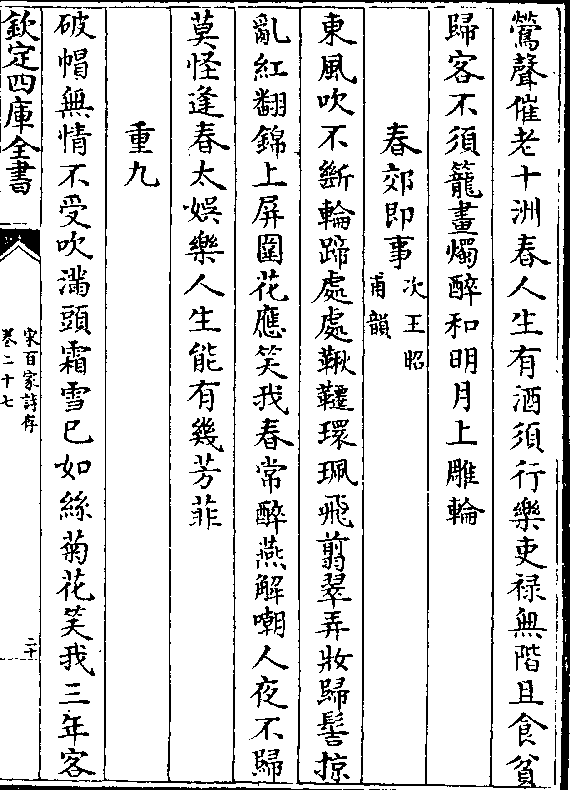 鶯聲催老十洲春人生有酒須行樂吏禄無階且食貧
歸客不須籠畫燭醉和明月上雕輪
春郊即事次王昭
甫韻
東風吹不斷輪蹄處處鞦韆環珮飛翦翠弄妝歸髻掠
亂紅翻錦上屏圍花應笑我春常醉燕解嘲人夜不歸
莫怪逢春太娛樂人生能有幾芳菲
重九
破帽無情不受吹滿頭霜雪已如絲菊花笑我三年客
欽定四庫全書
宋百家詩存
卷二十七
二十